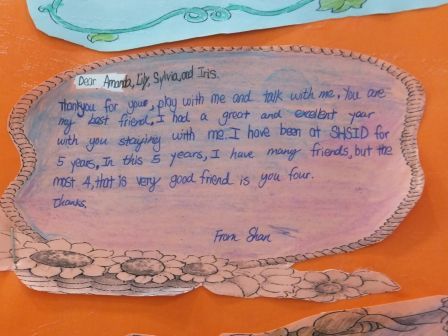 Dear Amanda, Lily, Sylvia, and Iris.
Thankyou for your, play with me and talk with me, You are
my best friend, I had a great and exellent year
with you staying with me. I have been at SHSID for
5 years, In this 5 years, I have many friends, but the
most 4, that is very good friend is you four.
Thanks.
From Shan